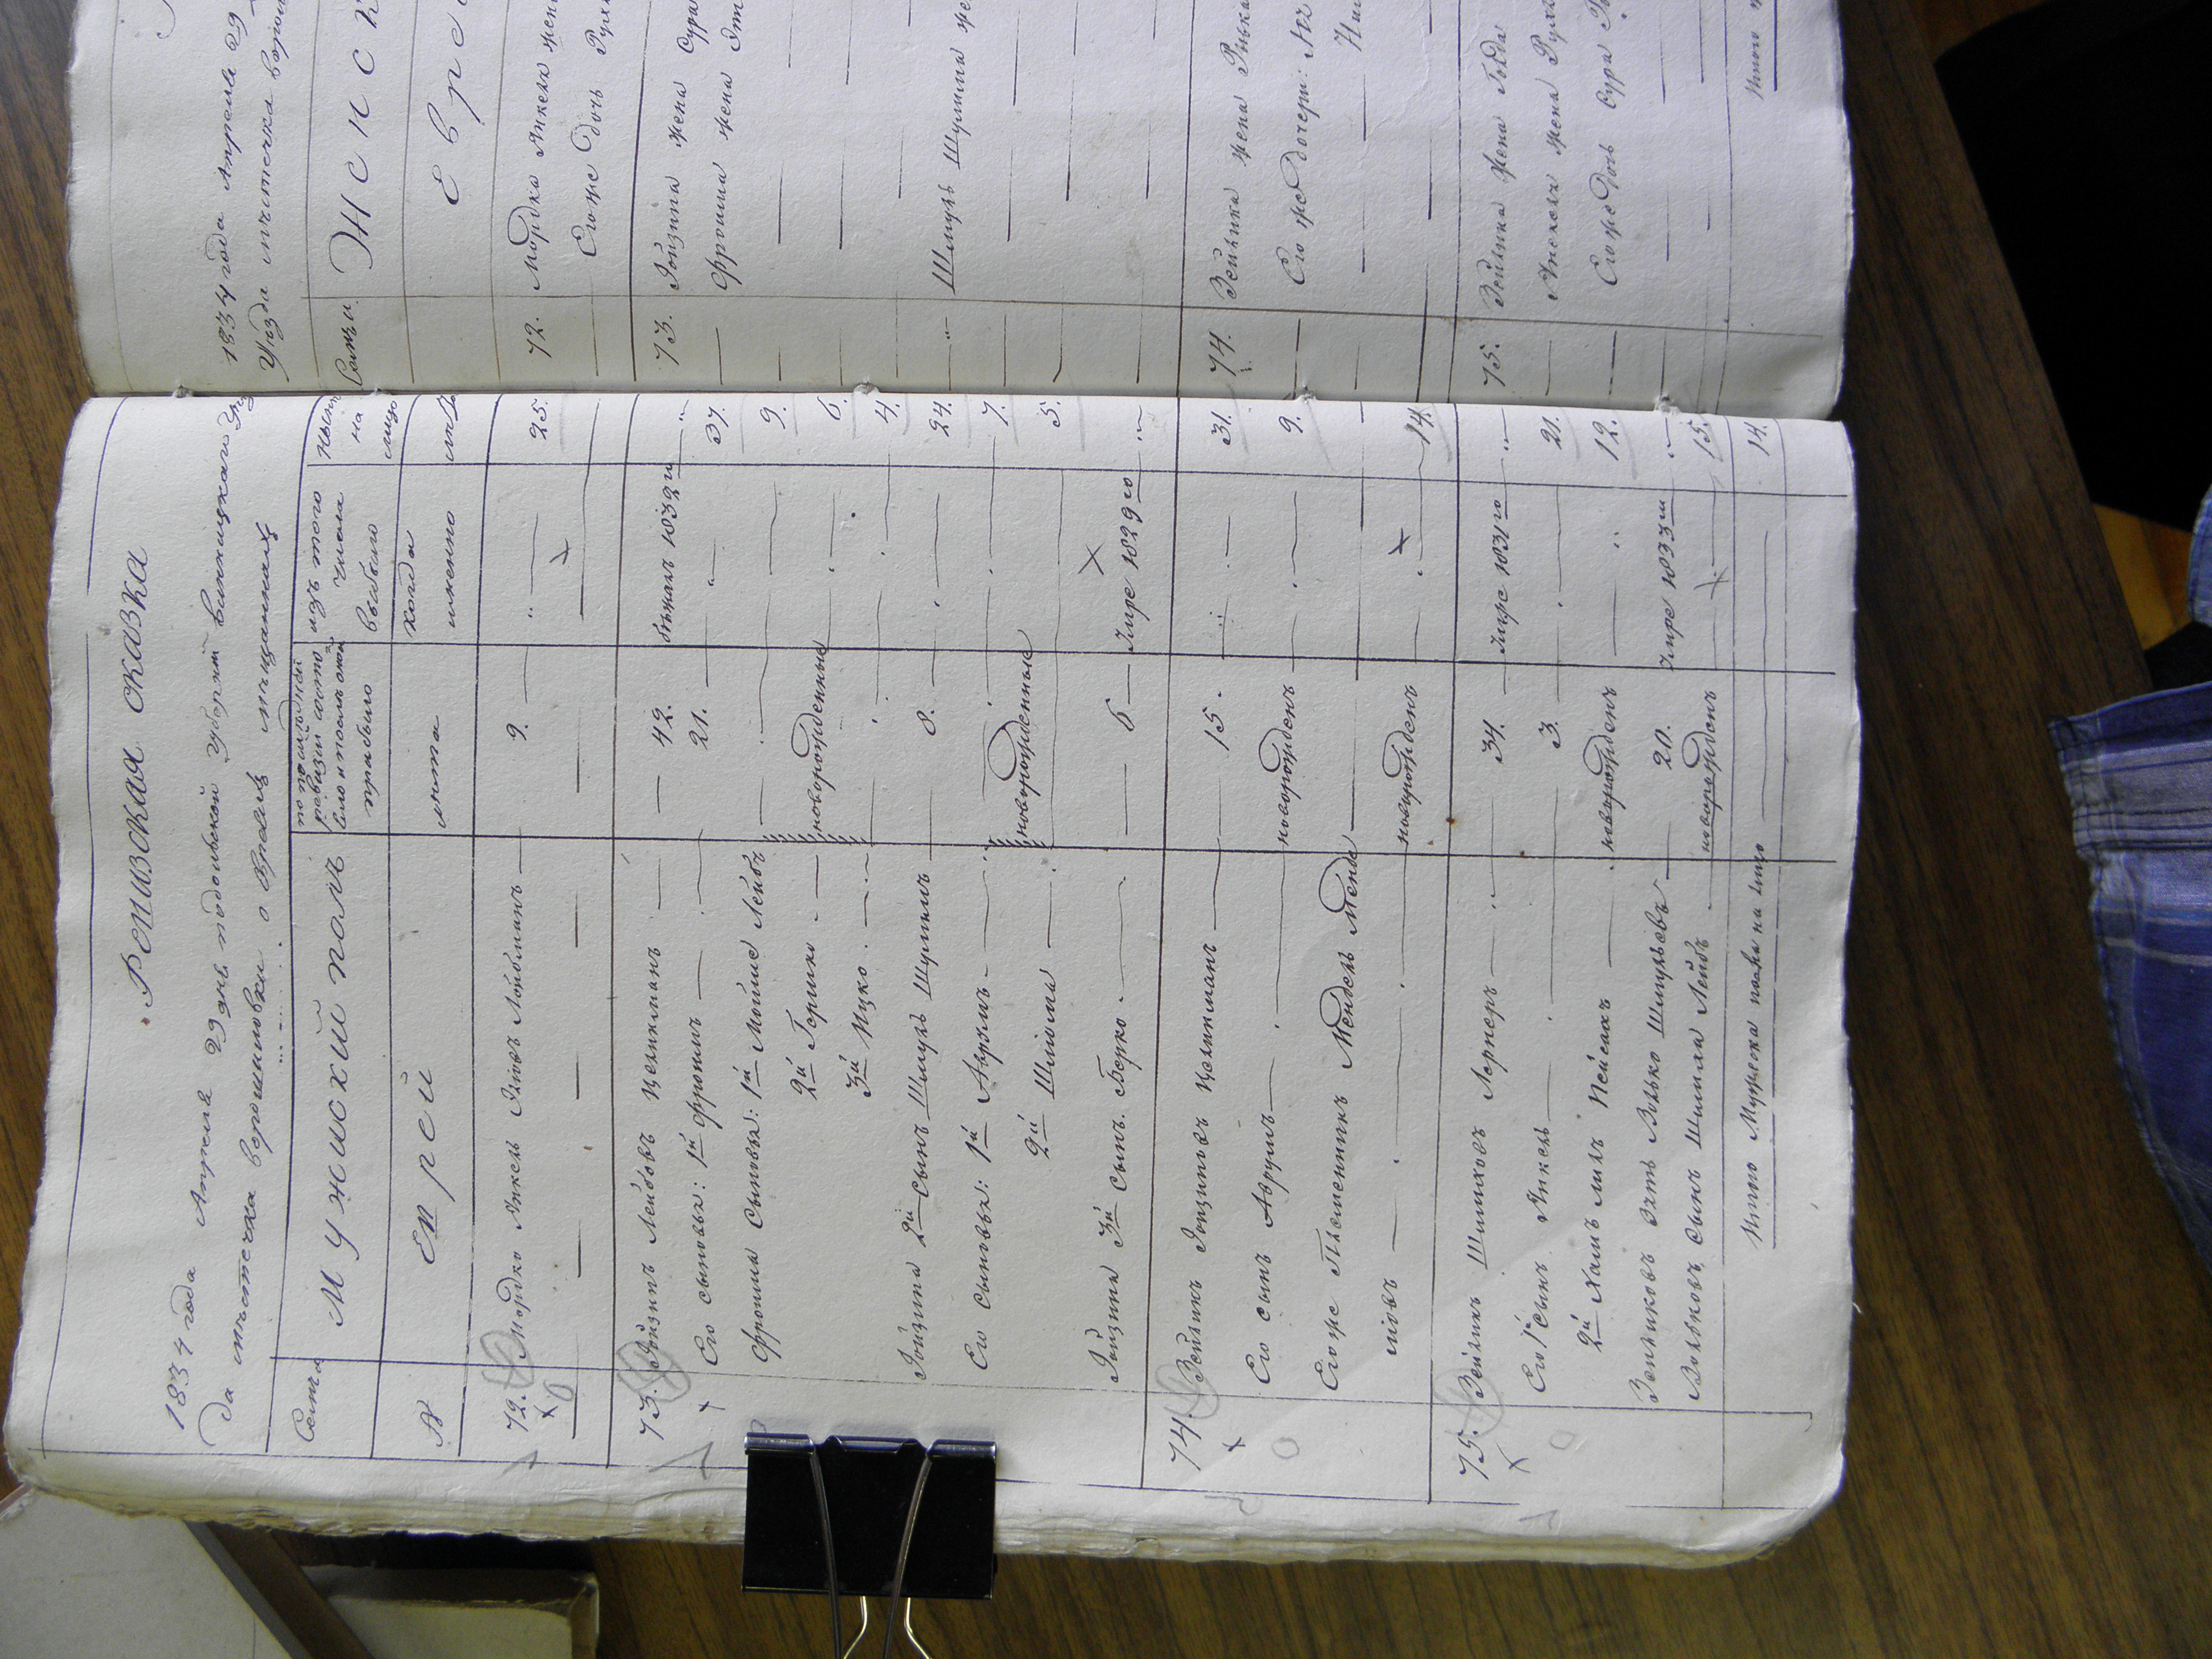 Ревизская сказка
1834 года Апреля 29 дня подольской губернии винницкого уѣз
да мѣстечка ворошиловки о Евреяхъ мѣщанахъ
Семьи
Мужиской полъ
по последней ревизии состо
яло и после оной прибыло
изъ того числа выбыло
ныне на лицо
№
Евреи
лета
когда именно
лета
72. Мордко Янкель Лейбманъ 9. 25.
73. Іойзипъ Лейбовъ Цехтманъ 42. бежалъ 1832го
Его сыновья: 1й Фроимъ 21. 37.
Фроима сыновья: 1й Мойше Лейбъ 9.
2й Гершко новорожденные 6.
3й Ицко 4.
Іойзипа 2й сынъ Шмуль Шулимъ 8. 24.
Его сыновья: 1й Аврумъ новорожденные 7.
2й Шлiома 5.
Іойзипа 3й сынъ Берко 6 Умре 1829го
74. Зейликъ Іойзиповъ Цехтманъ 15. 31.
Его сынъ Аврумъ новорожденъ 9.
Его же Племенникъ Мендель Менде
лiовъ новорожденъ 14.
75. Зейликъ Шмиловъ Лернеръ 34. Умре 1831го
Его 1й сынъ Янкель 3. 21.
2й Хаимъ Пейсахъ новорожденъ 12.
Зейликовъ Зять Волько Шмульовъ 20. Умре 1833го
Вольковъ сынъ Шмила Лейбъ новорожденъ 15.
Итого Мужеска пола на лицо 14.
1834 года Апреля 29
Уѣзда мѣстечка ворош
Семьи
Женск
Евре
72. Мордка Янкеля жен
Его же дочь Рух
73. Іойзипа жена Сура
Фроима жена Эт
Шмуль Шулима же
74. Зейлика жена Ривка
Его же дочери:
75. Зейлика жена Голда
Янкеля жена Рух
Его же дочь Сура
Итого